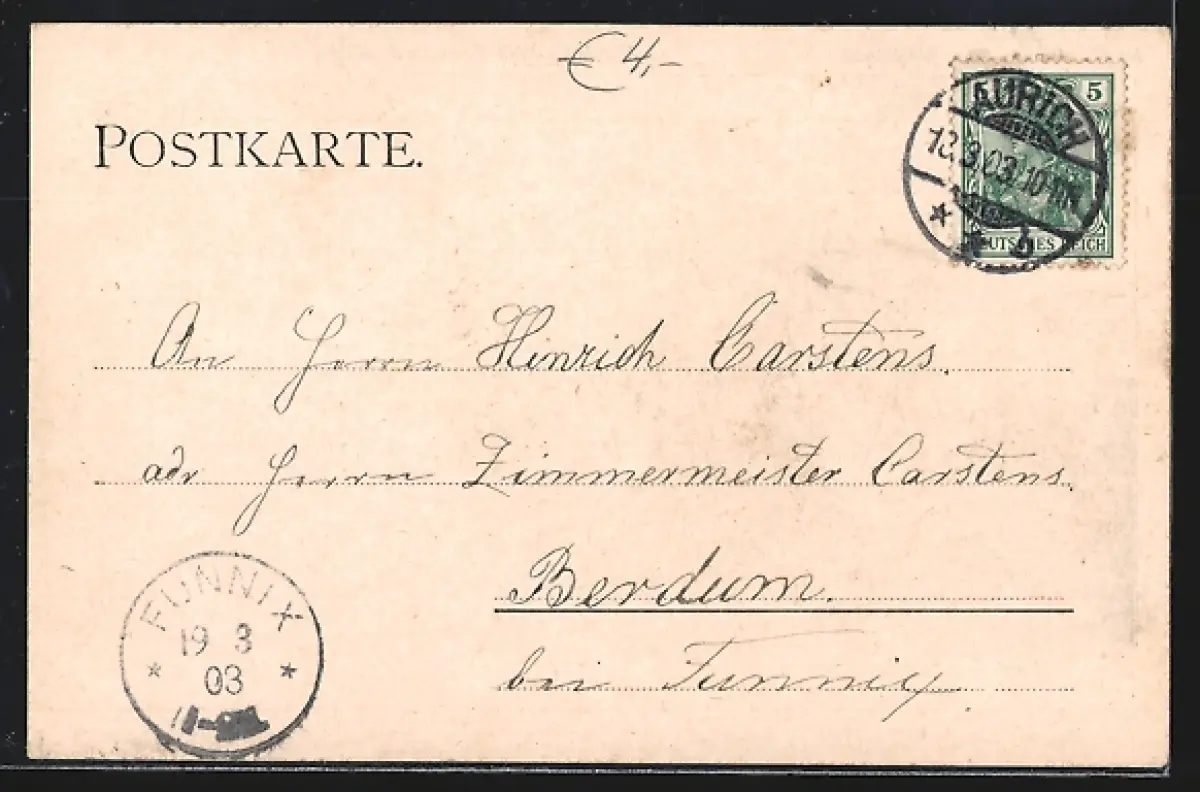 € 4,-
POSTKARTE.
5
AURICH
3.03. 10
* * b
DEUTSCHES REICH
An Herrn Hinrich Carstens.
adr Herrn Zimmermeister Carstens.
Berdum.
bei Funnix.
FUNNIX
19 3
03
* *